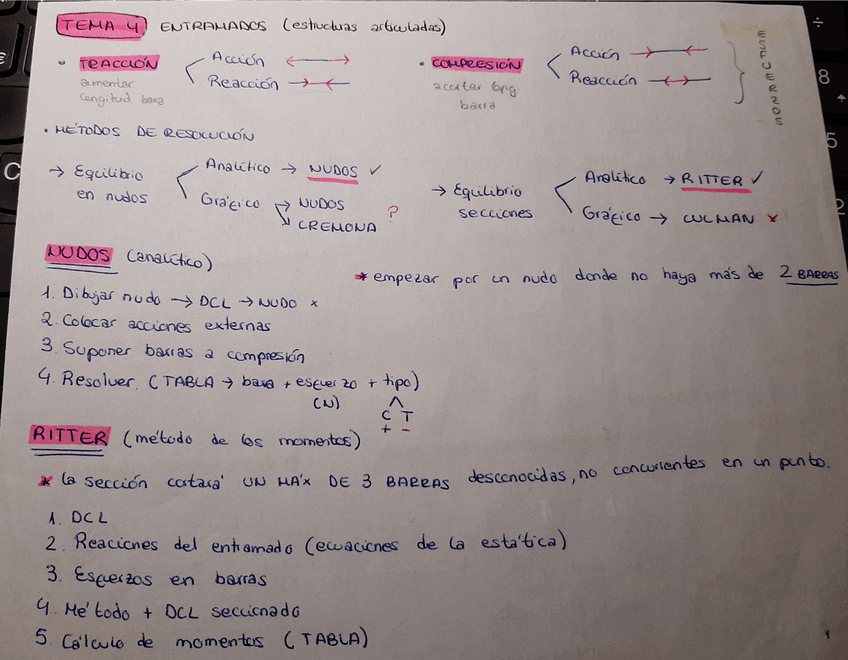 TEMA 4 ENTRAMADOS (estructuras articuladas)
• TRACCIÓN
Acción
Reacción
aumentar
longitud barra
• COMPRESIÓN
Acción
Reacción
acortar long.
barra
ESFUERZOS
• MÉTODOS DE RESOLUCIÓN
→ Equilibrio
en nudos
Analítico → NUDOS ✓
Gráfico → NUDOS
↘ CREMONA
?
→ Equilibrio
secciones
Analítico → RITTER ✓
Gráfico → CULMAN x
NUDOS (analítico)
* empezar por un nudo donde no haya más de 2 BARRAS
1. Dibujar nudo → DCL → NUDO x
2. Colocar acciones externas
3. Suponer barras a compresión
4. Resolver. (TABLA → barra + esfuerzo + tipo)
(N)
C T
+ -
RITTER (método de los momentos)
* la sección cortará UN MÁX DE 3 BARRAS desconocidas, no concurrentes en un punto.
1. DCL
2. Reaciones del entramado (ecuaciones de la estática)
3. Esfuerzos en barras
4. Método + DCL seccionado
5. Cálculo de momentos (TABLA)